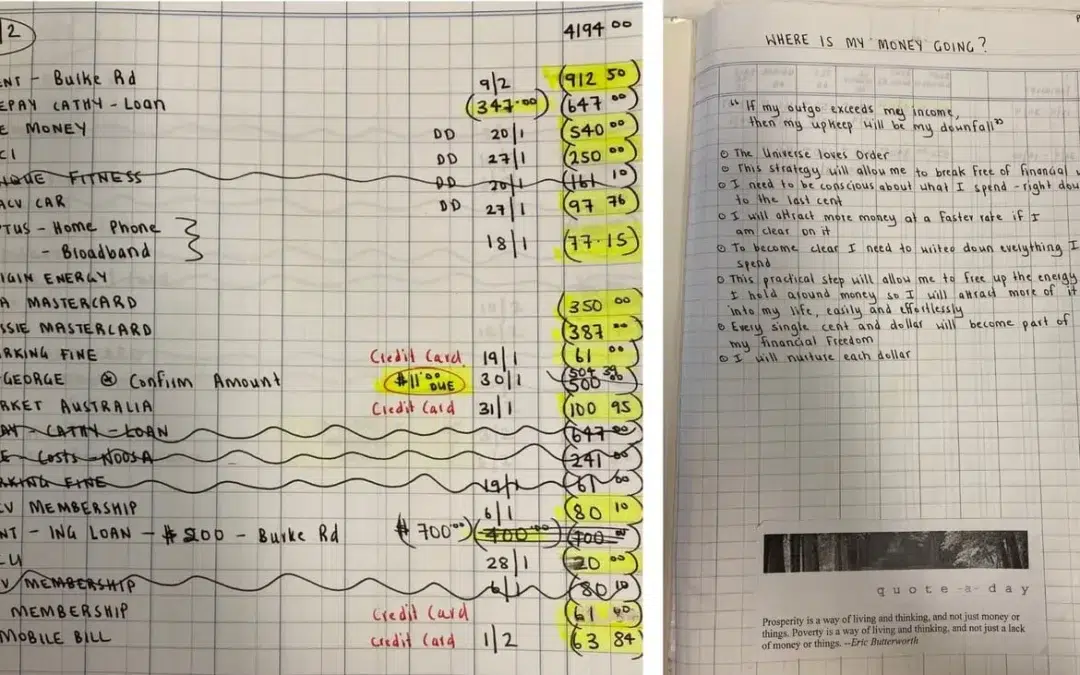 /2
4194 00
ENT - Buike Rd 9/2 (912 50)
EPAY CATHY - Loan (347.00) (647 00)
E MONEY DD 20/1 (540 00)
CI DD 27/1 (250 00)
IQUE FITNESS DD 20/1 (161 10)
ACV CAR DD 27/1 (97 76)
TUS - Home Phone
- Bloadband 18/1 (77.15)
IGIN ENERGY
A MASTERCARD (350 00)
SSIE MASTERCARD (387 00)
RKING FINE Credit Card 19/1 (61 00)
GEORGE ⊛ Confirm Amount $11.00 DUE 30/1 (504 39) (500 00)
RKET AUSTRALIA Credit Card 31/1 (100 95)
AY - CATHY - LOAN (647 00)
E - Costs - NOOSA (241 00)
RKING FINE 19/1 (61 00)
V MEMBERSHIP 6/1 (80 10)
NT - ING LOAN - $ 200 - Burke Rd ($ 700 00) (400 00) (700 00)
CU 28/1 (20 00)
V MEMBERSHIP 6/1 (80 10)
MEMBERSHIP Credit Card (61 40)
MOBILE BILL Credit Card 1/2 (63 84)
WHERE IS MY MONEY GOING?
"If my outgo exceeds mey income,
then my upkeep will be my downfall"
The Universe loves Order
This strategy will allow me to break free of financial w
I need to be conscious about what I spend - right dow
to the last cent
I will attract more money at a faster rate if I
am clear on it
To become clear I need to writeo down everything I
spend
This practical step will allow me to free up the energy
I hold around money so I will attract more of it
into my life, easily and effortlessly
Every single cent and dollar will become part of
my financial freedom
I will nurture each dollar
quote-a-day
Prosperity is a way of living and thinking, and not just money or
things. Poverty is a way of living and thinking, and not just a lack
of money or things. --Eric Butterworth